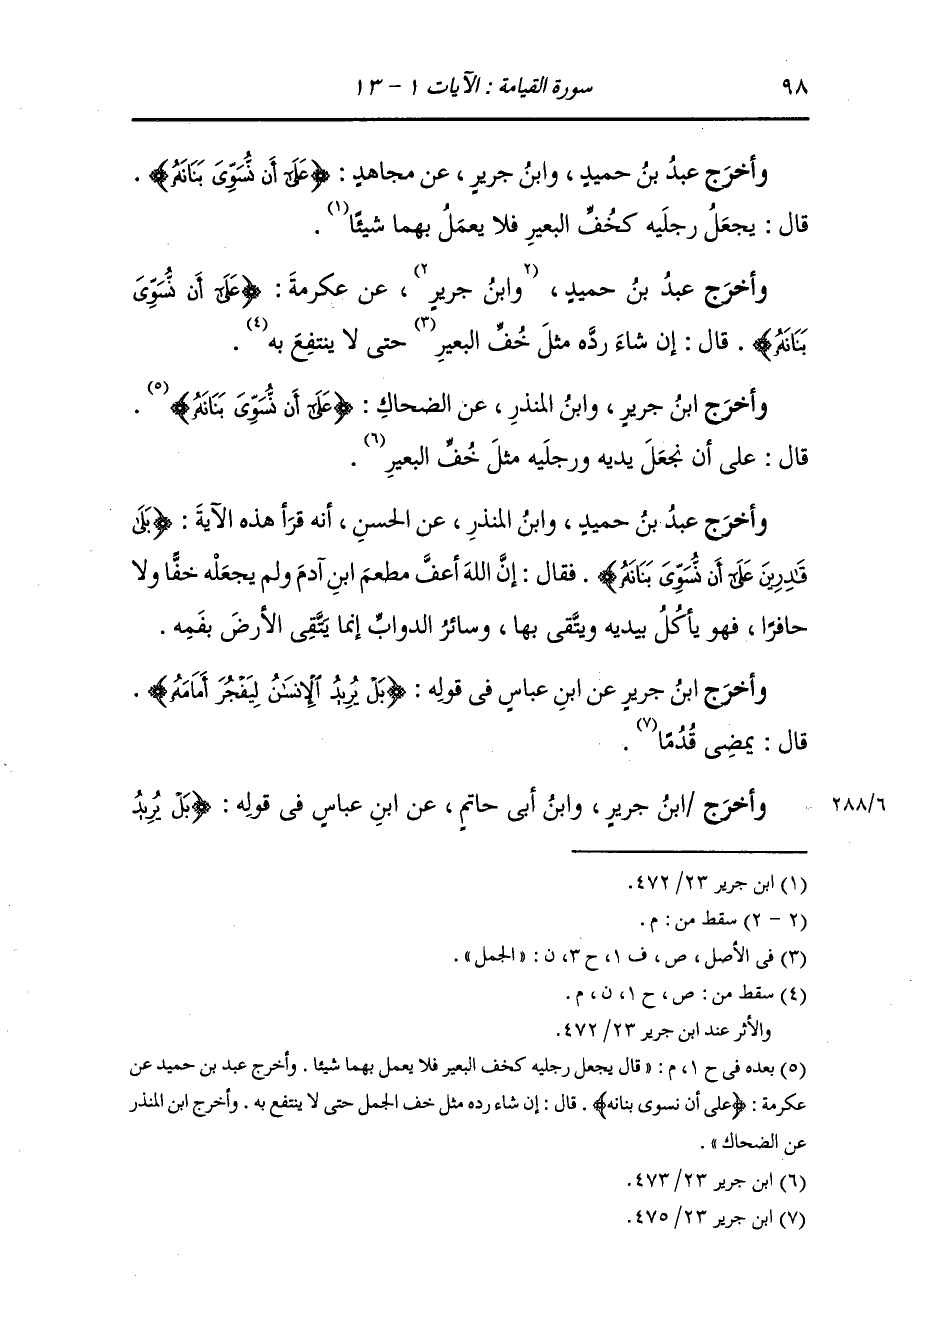 ٩٨ سورة القيامة : الآيات ١ - ١٣
وأخرَج عبدُ بنُ حميدٍ ، وابنُ جريرٍ ، عن مجاهدٍ : ﴿عَلَىٰٓ أَن نُّسَوِّىَ بَنَانَهُۥ﴾ .
قال : يجعَلُ رجلَيه كخُفِّ البعيرِ فلا يعمَلُ بهما شيئًا(١) .
وأخرَج عبدُ بنُ حميدٍ ، (٢وابنُ جريرٍ٢) ، عن عكرمةَ : ﴿عَلَىٰٓ أَن نُّسَوِّىَ
بَنَانَهُۥ﴾ . قال : إن شاءَ ردَّه مثلَ خُفِّ البعيرِ(٣) حتى لا ينتفِعَ به(٤) .
وأخرَج ابنُ جريرٍ ، وابنُ المنذرِ ، عن الضحاكِ : ﴿عَلَىٰٓ أَن نُّسَوِّىَ بَنَانَهُۥ﴾(٥) .
قال : على أن نجعَلَ يديه ورجلَيه مثلَ خُفِّ البعيرِ(٦) .
وأخرَج عبدُ بنُ حميدٍ ، وابنُ المنذرِ ، عن الحسنِ ، أنه قرَأ هذه الآيةَ : ﴿بَلَىٰ
قَـٰدِرِينَ عَلَىٰٓ أَن نُّسَوِّىَ بَنَانَهُۥ﴾ . فقال : إنَّ اللهَ أعفَّ مطعمَ ابنِ آدمَ ولم يجعَلْه خفًّا ولا
حافرًا ، فهو يأكُلُ بيديه ويتَّقى بها ، وسائرُ الدوابِّ إنما يَتَّقِى الأرضَ بفَمِه .
وأخرَج ابنُ جريرٍ عن ابنِ عباسٍ فى قولِه : ﴿بَلْ يُرِيدُ ٱلْإِنسَـٰنُ لِيَفْجُرَ أَمَامَهُۥ﴾ .
قال : يمضِى قُدُمًا(٧) .
وأخرَج /ابنُ جريرٍ ، وابنُ أبى حاتمٍ ، عن ابنِ عباسٍ فى قولِه : ﴿بَلْ يُرِيدُ
٢٨٨/٦
(١) ابن جرير ٢٣/ ٤٧٢.
(٢ - ٢) سقط من : م .
(٣) فى الأصل ، ص ، ف ١، ح ٣، ن : « الجمل » .
(٤) سقط من : ص ، ح ١، ن ، م .
والأثر عند ابن جرير ٢٣/ ٤٧٢.
(٥) بعده فى ح ١، م : « قال يجعل رجليه كخف البعير فلا يعمل بهما شيئا . وأخرج عبد بن حميد عن
عكرمة : ﴿على أن نسوى بنانه﴾ . قال : إن شاء رده مثل خف الجمل حتى لا ينتفع به . وأخرج ابن المنذر
عن الضحاك » .
(٦) ابن جرير ٢٣/ ٤٧٣.
(٧) ابن جرير ٢٣/ ٤٧٥.